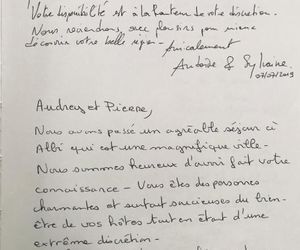 Votre disponibilité est à la hauteur de votre discrétion.
Nous reviendrons, avec plaisir pour mieux
découvrir votre belle région -
Amicalement
Antoine & Sylviane
07/07/2019
Audrey et Pierre,
Nous avons passé un agréable séjour ici
Albi qui est une magnifique ville -
Nous sommes heureux d'avoir fait votre
connaissance - Vous êtes des personnes
charmantes et surtout soucieuses du bien-
être de vos hôtes tout en étant d'une
extrême discrétion -